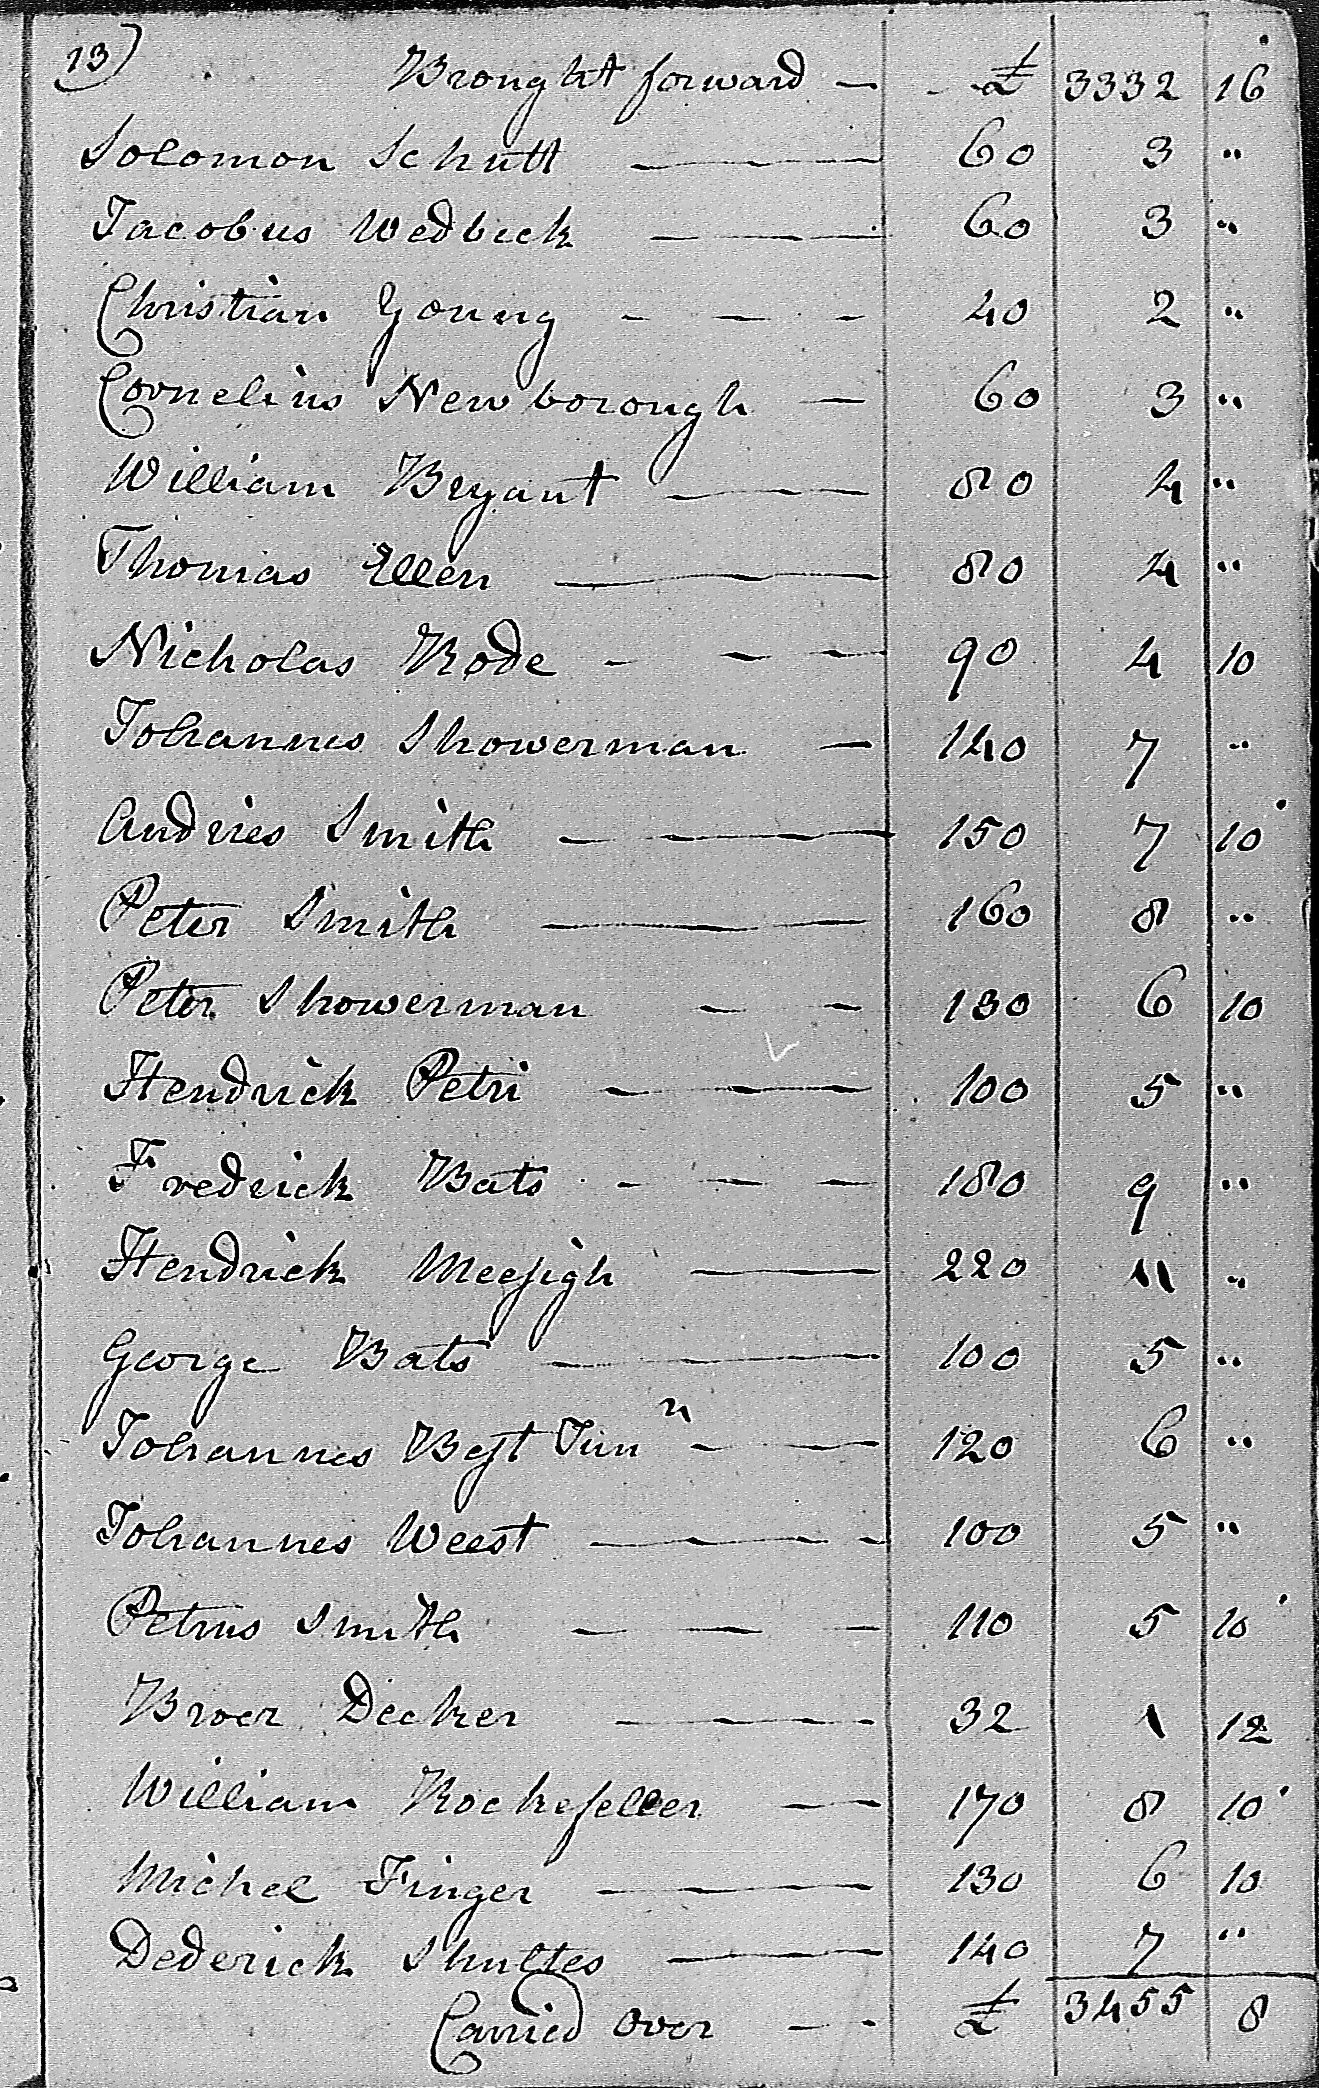 13)
Brought forward — £ 3332 16
Solomon Schutt — 60 3 "
Jacobus Wedbeck — 60 3 "
Christian Young — 40 2 "
Cornelius Newborough — 60 3 "
William Bryant — 80 4 "
Thomas Ellen — 80 4 "
Nicholas Rode — 90 4 10
Johannes Showerman — 140 7 "
Andries Smith — 150 7 10
Peter Smith — 160 8 "
Peter Showerman — 130 6 10
Hendrick Petri — 100 5 "
Fredrick Bats — 180 9 "
Hendrick Meesigh — 220 11 "
George Bats — 100 5 "
Johannes Best Junr — 120 6 "
Johannes Weest — 100 5 "
Petrus Smith — 110 5 10
Broer Decker — 32 1 12
William Rockefeller — 170 8 10
Michel Finger — 130 6 10
Dederick Shultes — 140 7 "
Carried over — £ 3455 8